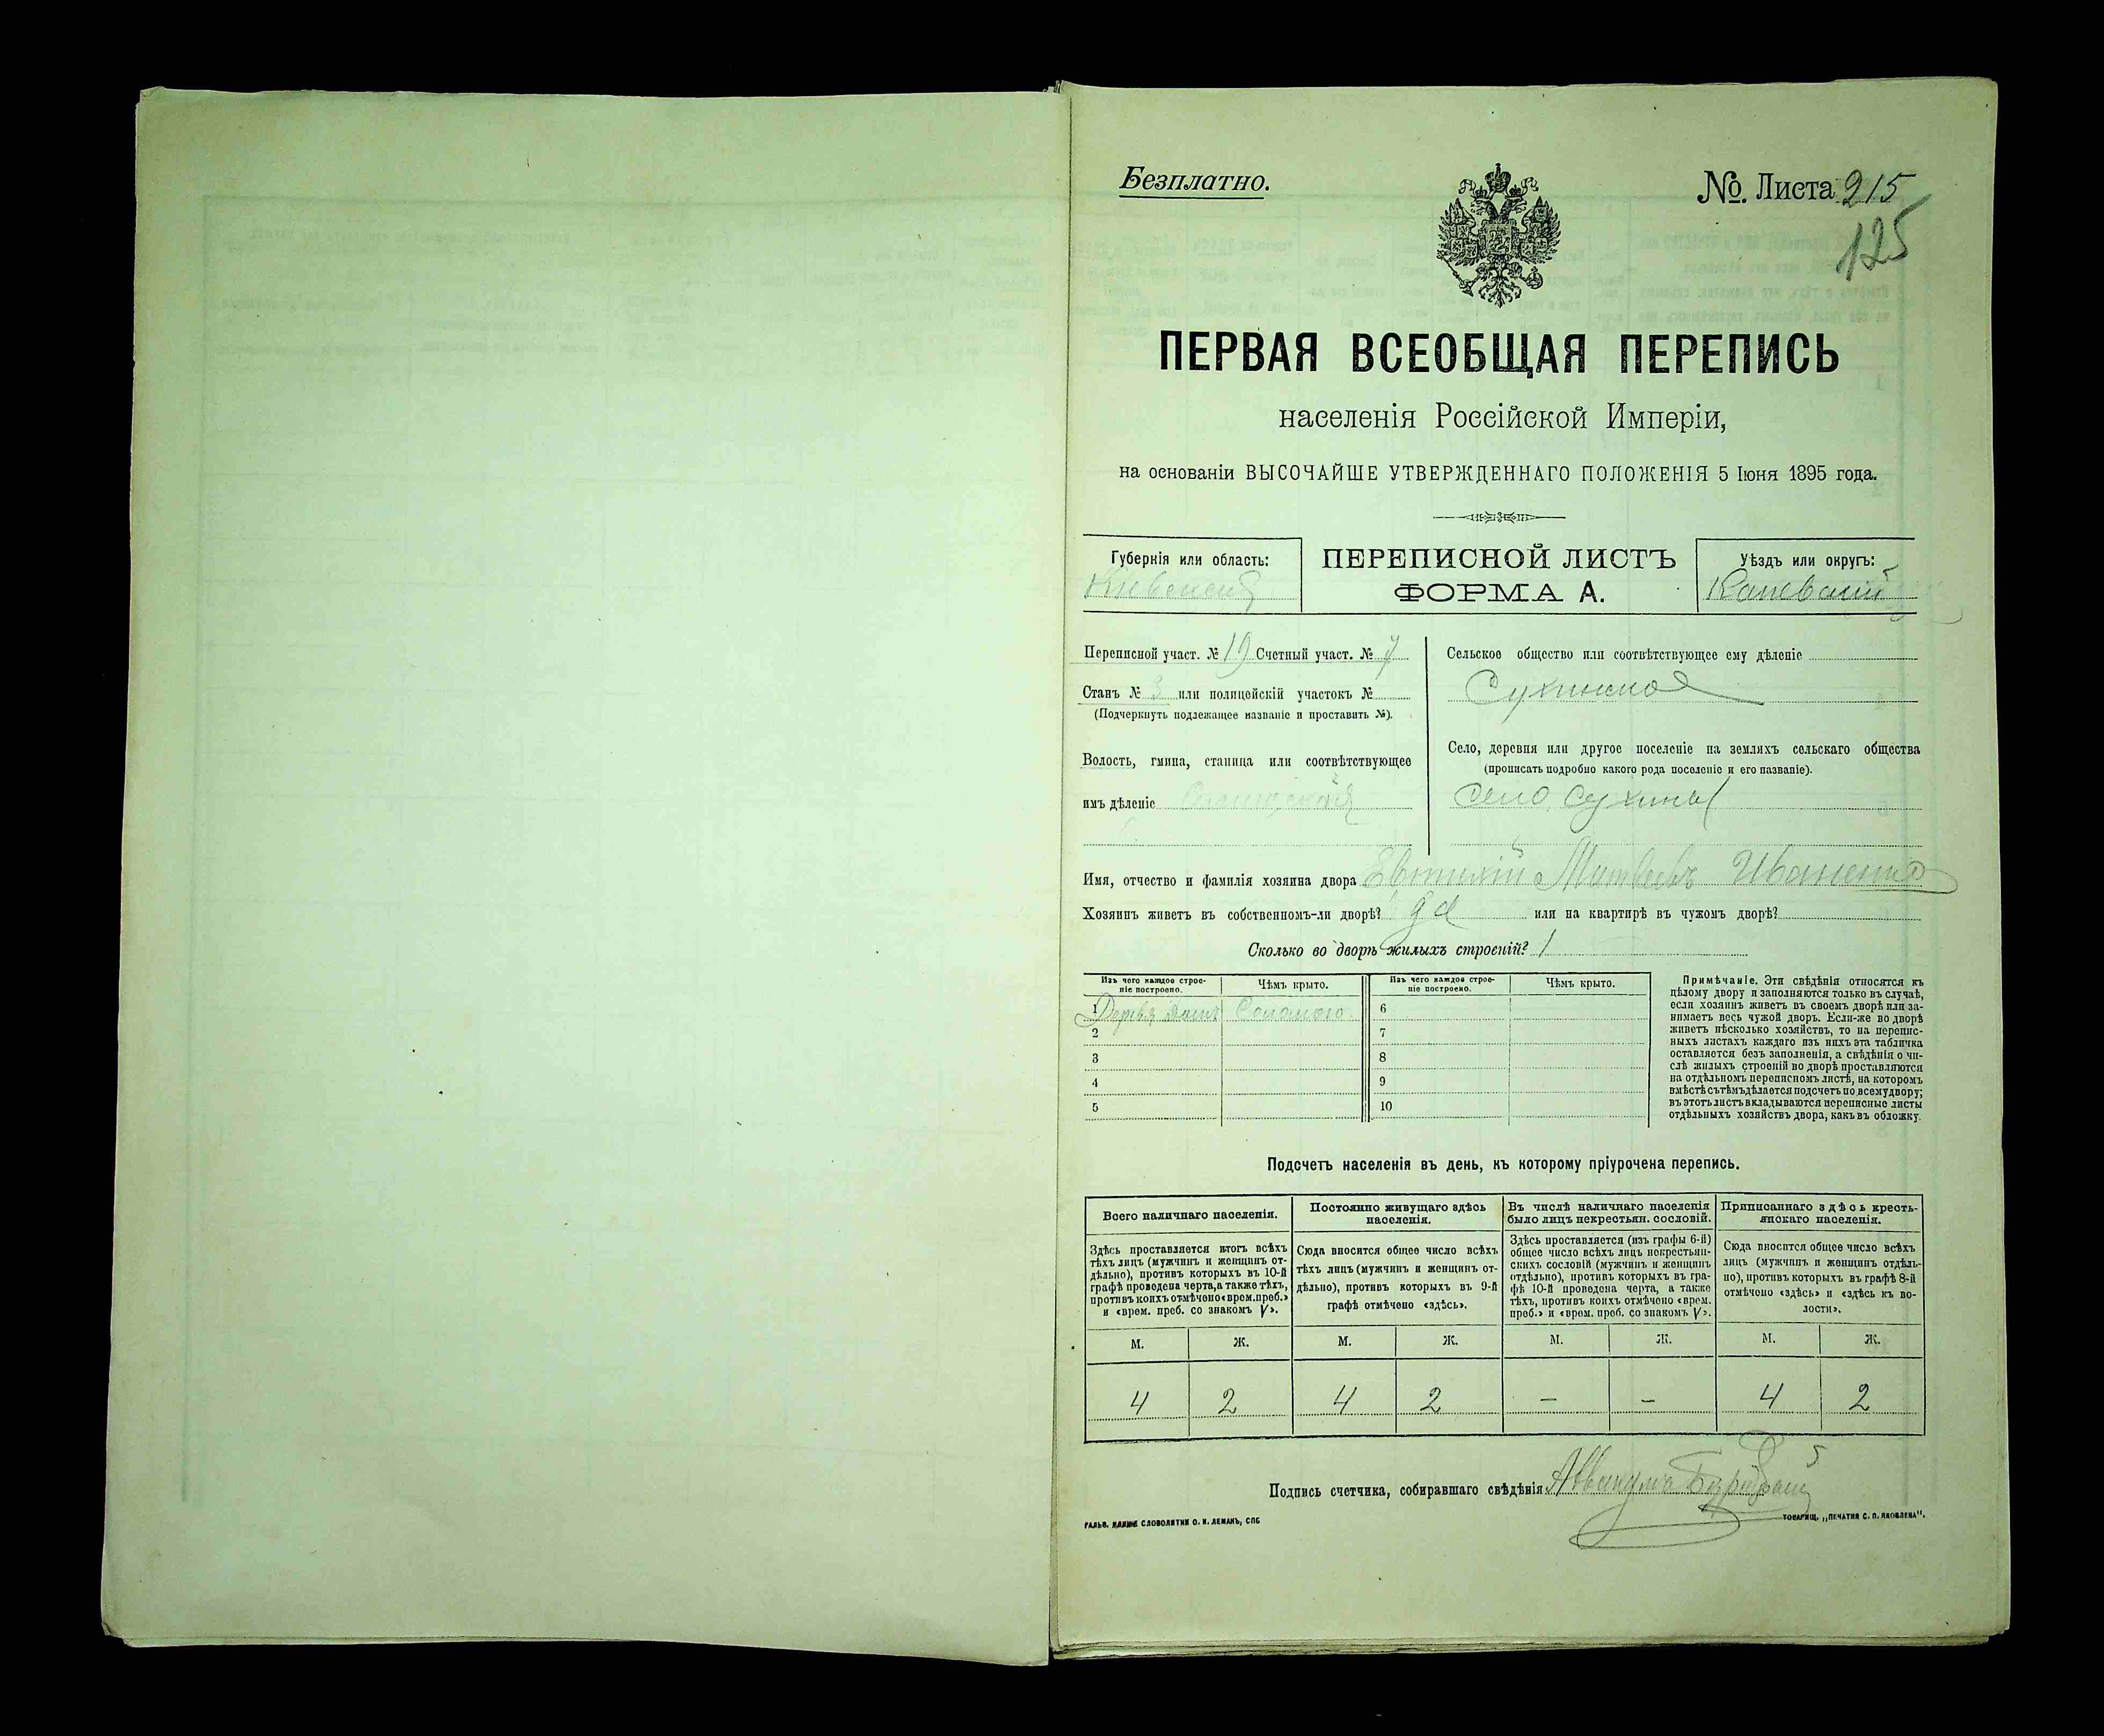 Безплатно.
№. Листа 215
125
ПЕРВАЯ ВСЕОБЩАЯ ПЕРЕПИСЬ
населенія Россійской Имперіи,
на основаніи ВЫСОЧАЙШЕ УТВЕРЖДЕННАГО ПОЛОЖЕНІЯ 5 Іюня 1895 года.
Губернія или область:
Кіевская
ПЕРЕПИСНОЙ ЛИСТЪ
ФОРМА А.
Уѣздъ или округъ:
Каневскій
Переписной участ. № 19 Счетный участ. № 7
Станъ № 3 или полицейскій участокъ №
(Подчеркнуть подлежащее названіе и проставить №).
Волость, гмина, станица или соотвѣтствующее
имъ дѣленіе
Сельское общество или соотвѣтствующее ему дѣленіе
Сухинское
Село, деревня или другое поселеніе на земляхъ сельскаго общества
(прописать подробно какого рода поселеніе и его названіе).
село Сухины
Имя, отчество и фамилія хозяина двора Евтихій Матвеевъ Иваненко
Хозяинъ живетъ въ собственномъ-ли дворѣ? да или на квартирѣ въ чужомъ дворѣ?
Сколько во дворѣ жилыхъ строеній? 1
Изъ чего каждое строе-
ніе построено.
Чѣмъ крыто.
Изъ чего каждое строе-
ніе построено.
Чѣмъ крыто.
1 Соломою 6
2 7
3 8
4 9
5 10
Примѣчаніе. Эти свѣдѣнія относятся къ
цѣлому двору и заполняются только въ случаѣ,
если хозяинъ живетъ въ своемъ дворѣ или за-
нимаетъ весь чужой дворъ. Если-же во дворѣ
живетъ нѣсколько хозяйствъ, то на перепис-
ныхъ листахъ каждаго изъ нихъ эта табличка
оставляется безъ заполненія, а свѣдѣнія о чи-
слѣ жилыхъ строеній во дворѣ проставляются
на отдѣльномъ переписномъ листѣ, на которомъ
вмѣстѣ съ тѣмъ дѣлается подсчетъ по всему двору;
въ этотъ листъ вкладываются переписные листы
отдѣльныхъ хозяйствъ двора, какъ въ обложку.
Подсчетъ населенія въ день, къ которому пріурочена перепись.
Всего наличнаго населенія.
Здѣсь проставляется итогъ всѣхъ
тѣхъ лицъ (мужчинъ и женщинъ от-
дѣльно), противъ которыхъ въ 10-й
графѣ проведена черта, а также тѣхъ,
противъ коихъ отмѣчено «врем. преб.»
и «врем. преб. со знакомъ V».
Постоянно живущаго здѣсь
населенія.
Сюда вносится общее число всѣхъ
тѣхъ лицъ (мужчинъ и женщинъ от-
дѣльно), противъ которыхъ въ 9-й
графѣ отмѣчено «здѣсь».
Въ числѣ наличнаго населенія
было лицъ некрестьян. сословій.
Здѣсь проставляется (изъ графы 6-й)
общее число всѣхъ лицъ некрестьян-
скихъ сословій (мужчинъ и женщинъ
отдѣльно), противъ которыхъ въ гра-
фѣ 10-й проведена черта, а также
тѣхъ, противъ коихъ отмѣчено «врем.
преб.» и «врем. преб. со знакомъ V».
Приписаннаго здѣсь кресть-
янскаго населенія.
Сюда вносится общее число всѣхъ
лицъ (мужчинъ и женщинъ отдѣль-
но), противъ которыхъ въ графѣ 8-й
отмѣчено «здѣсь» и «здѣсь къ во-
лости».
М. Ж. М. Ж. М. Ж. М. Ж.
4 2 4 2 — — 4 2
Подпись счетчика, собиравшаго свѣдѣнія
СЛОВОЛИТНИ О. И. ЛЕМАНЪ, СПБ
ТОВАРИЩ. „ПЕЧАТНЯ С. П. ЯКОВЛЕВА".